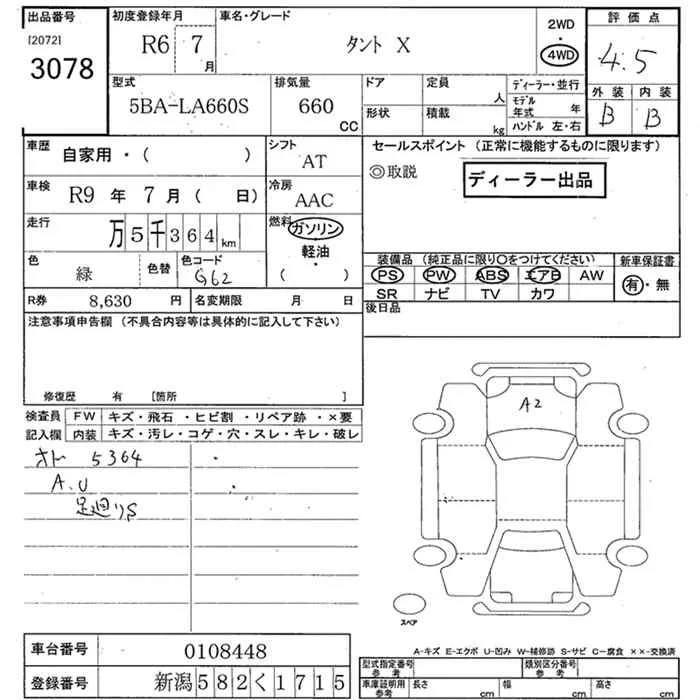 出品番号
[2072]
3078
初度登録年月
R6 7
月
車名・グレード
タント X
2WD
・
4WD
評 価 点
4.5
外 装 内 装
B B
型式
5BA-LA660S
排気量
660
CC
ドア
形状
定員
人
積載
kg
ディーラー・並行
モデル
年式 年
ハンドル 左・右
車歴 自家用・( )
シフト
AT
車検 R9 年 7 月 ( 日)
冷房
AAC
走行 万 5 千 3 6 4 km
燃料
ガソリン
・
軽油
・
( )
色
緑
色替
色コード
G62
R券 8,630 円
名変期限 月 日
セールスポイント (正常に機能するものに限ります)
◎取説
ディーラー出品
装備品 (純正品に限り○をつけてください)
PS PW ABS エアB AW
SR ナビ TV カワ
新車保証書
有・無
後日品
注意事項申告欄 (不具合内容等は具体的に記入して下さい)
修復歴 有 [箇所 ]
検査員
記入欄
FW キズ・飛石・ヒビ割・リペア跡・×要
内装 キズ・汚レ・コゲ・穴・スレ・キレ・破レ
オドー 5364
A.U
足廻りS
A2
スペア
A-キズ E-エクボ U-凹み W-補修跡 S-サビ C-腐食 ××-交換済
車台番号 0108448
登録番号 新潟 5 8 2 く 1 7 1 5
型式指定番号
参 考
類別区分番号
参 考
車庫証明用
参考
長さ cm
幅 cm
高さ cm